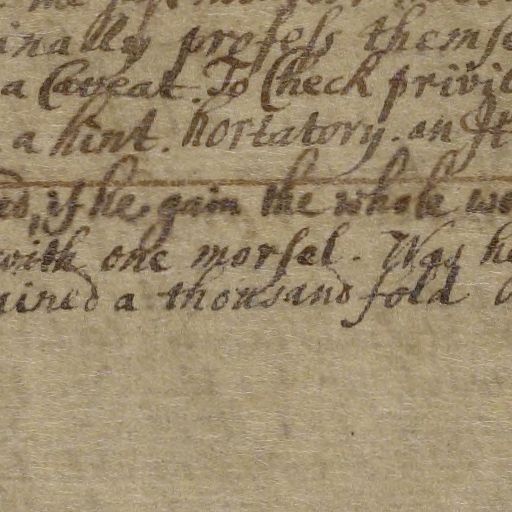 inally profess themse
a Caveat. To Check privil
a hint. hortatory. an It
if he gain the whole wo
with one morsel. Was he
uired a thousand fold